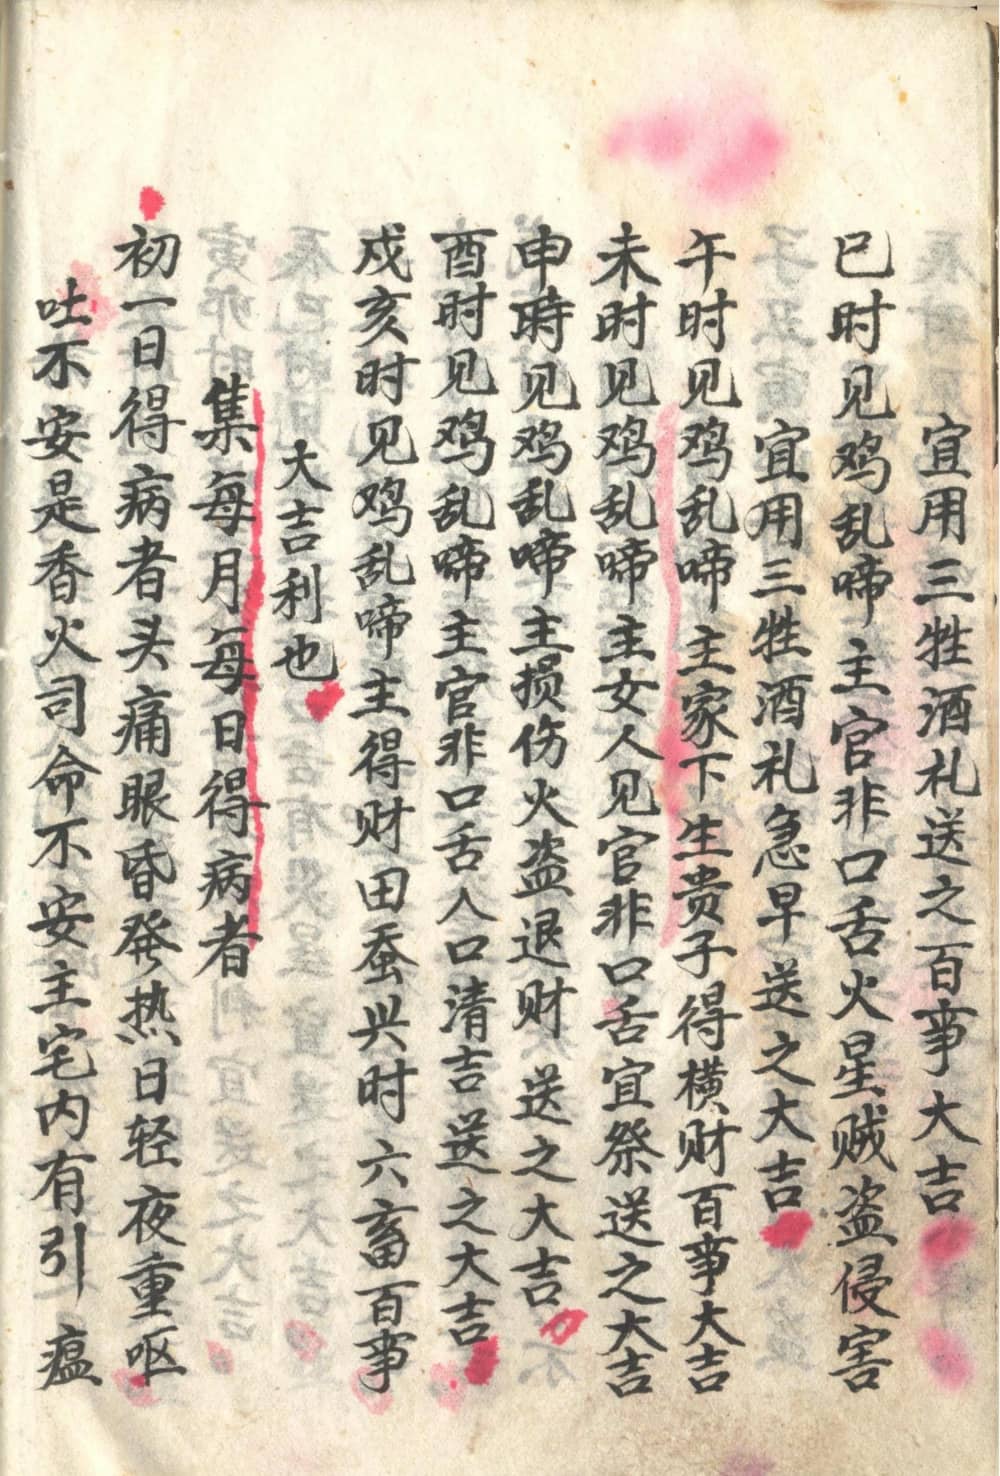 宜用三牲酒礼送之百事大吉
巳时见鸡乱啼主官非口舌火星贼盗侵害
宜用三牲酒礼急早送之大吉
午时见鸡乱啼主家下生贵子得横财百事大吉
未时见鸡乱啼主女人见官非口舌宜祭送之大吉
申時见鸡乱啼主损伤火盗退财送之大吉
酉时见鸡乱啼主官非口舌人口清吉送之大吉
戌亥时见鸡乱啼主得财田蚕兴时六畜百事
大吉利也
集每月每日得病者
初一日得病者头痛眼昏発热日轻夜重呕
吐不安是香火司命不安主宅内有引瘟